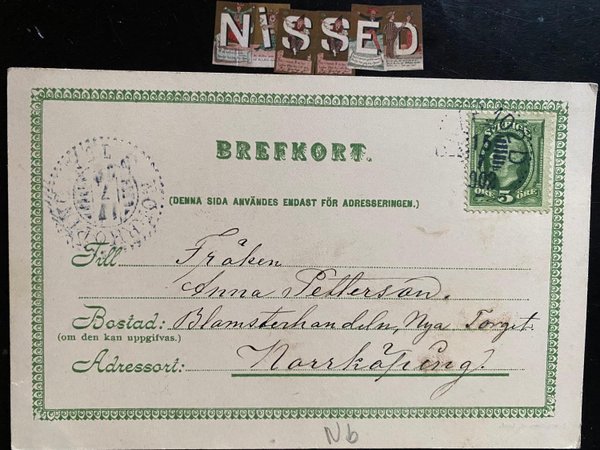 NiSSED
BREFKORT.
(DENNA SIDA ANVÄNDES ENDAST FÖR ADRESSERINGEN.)
SVERIGE
ÖRE 5 ÖRE
Till Fröken
Anna Petterson.
Bostad: Blomsterhandeln, Nya Torget
(om den kan uppgifvas.)
Adressort: Norrköping!
Nb